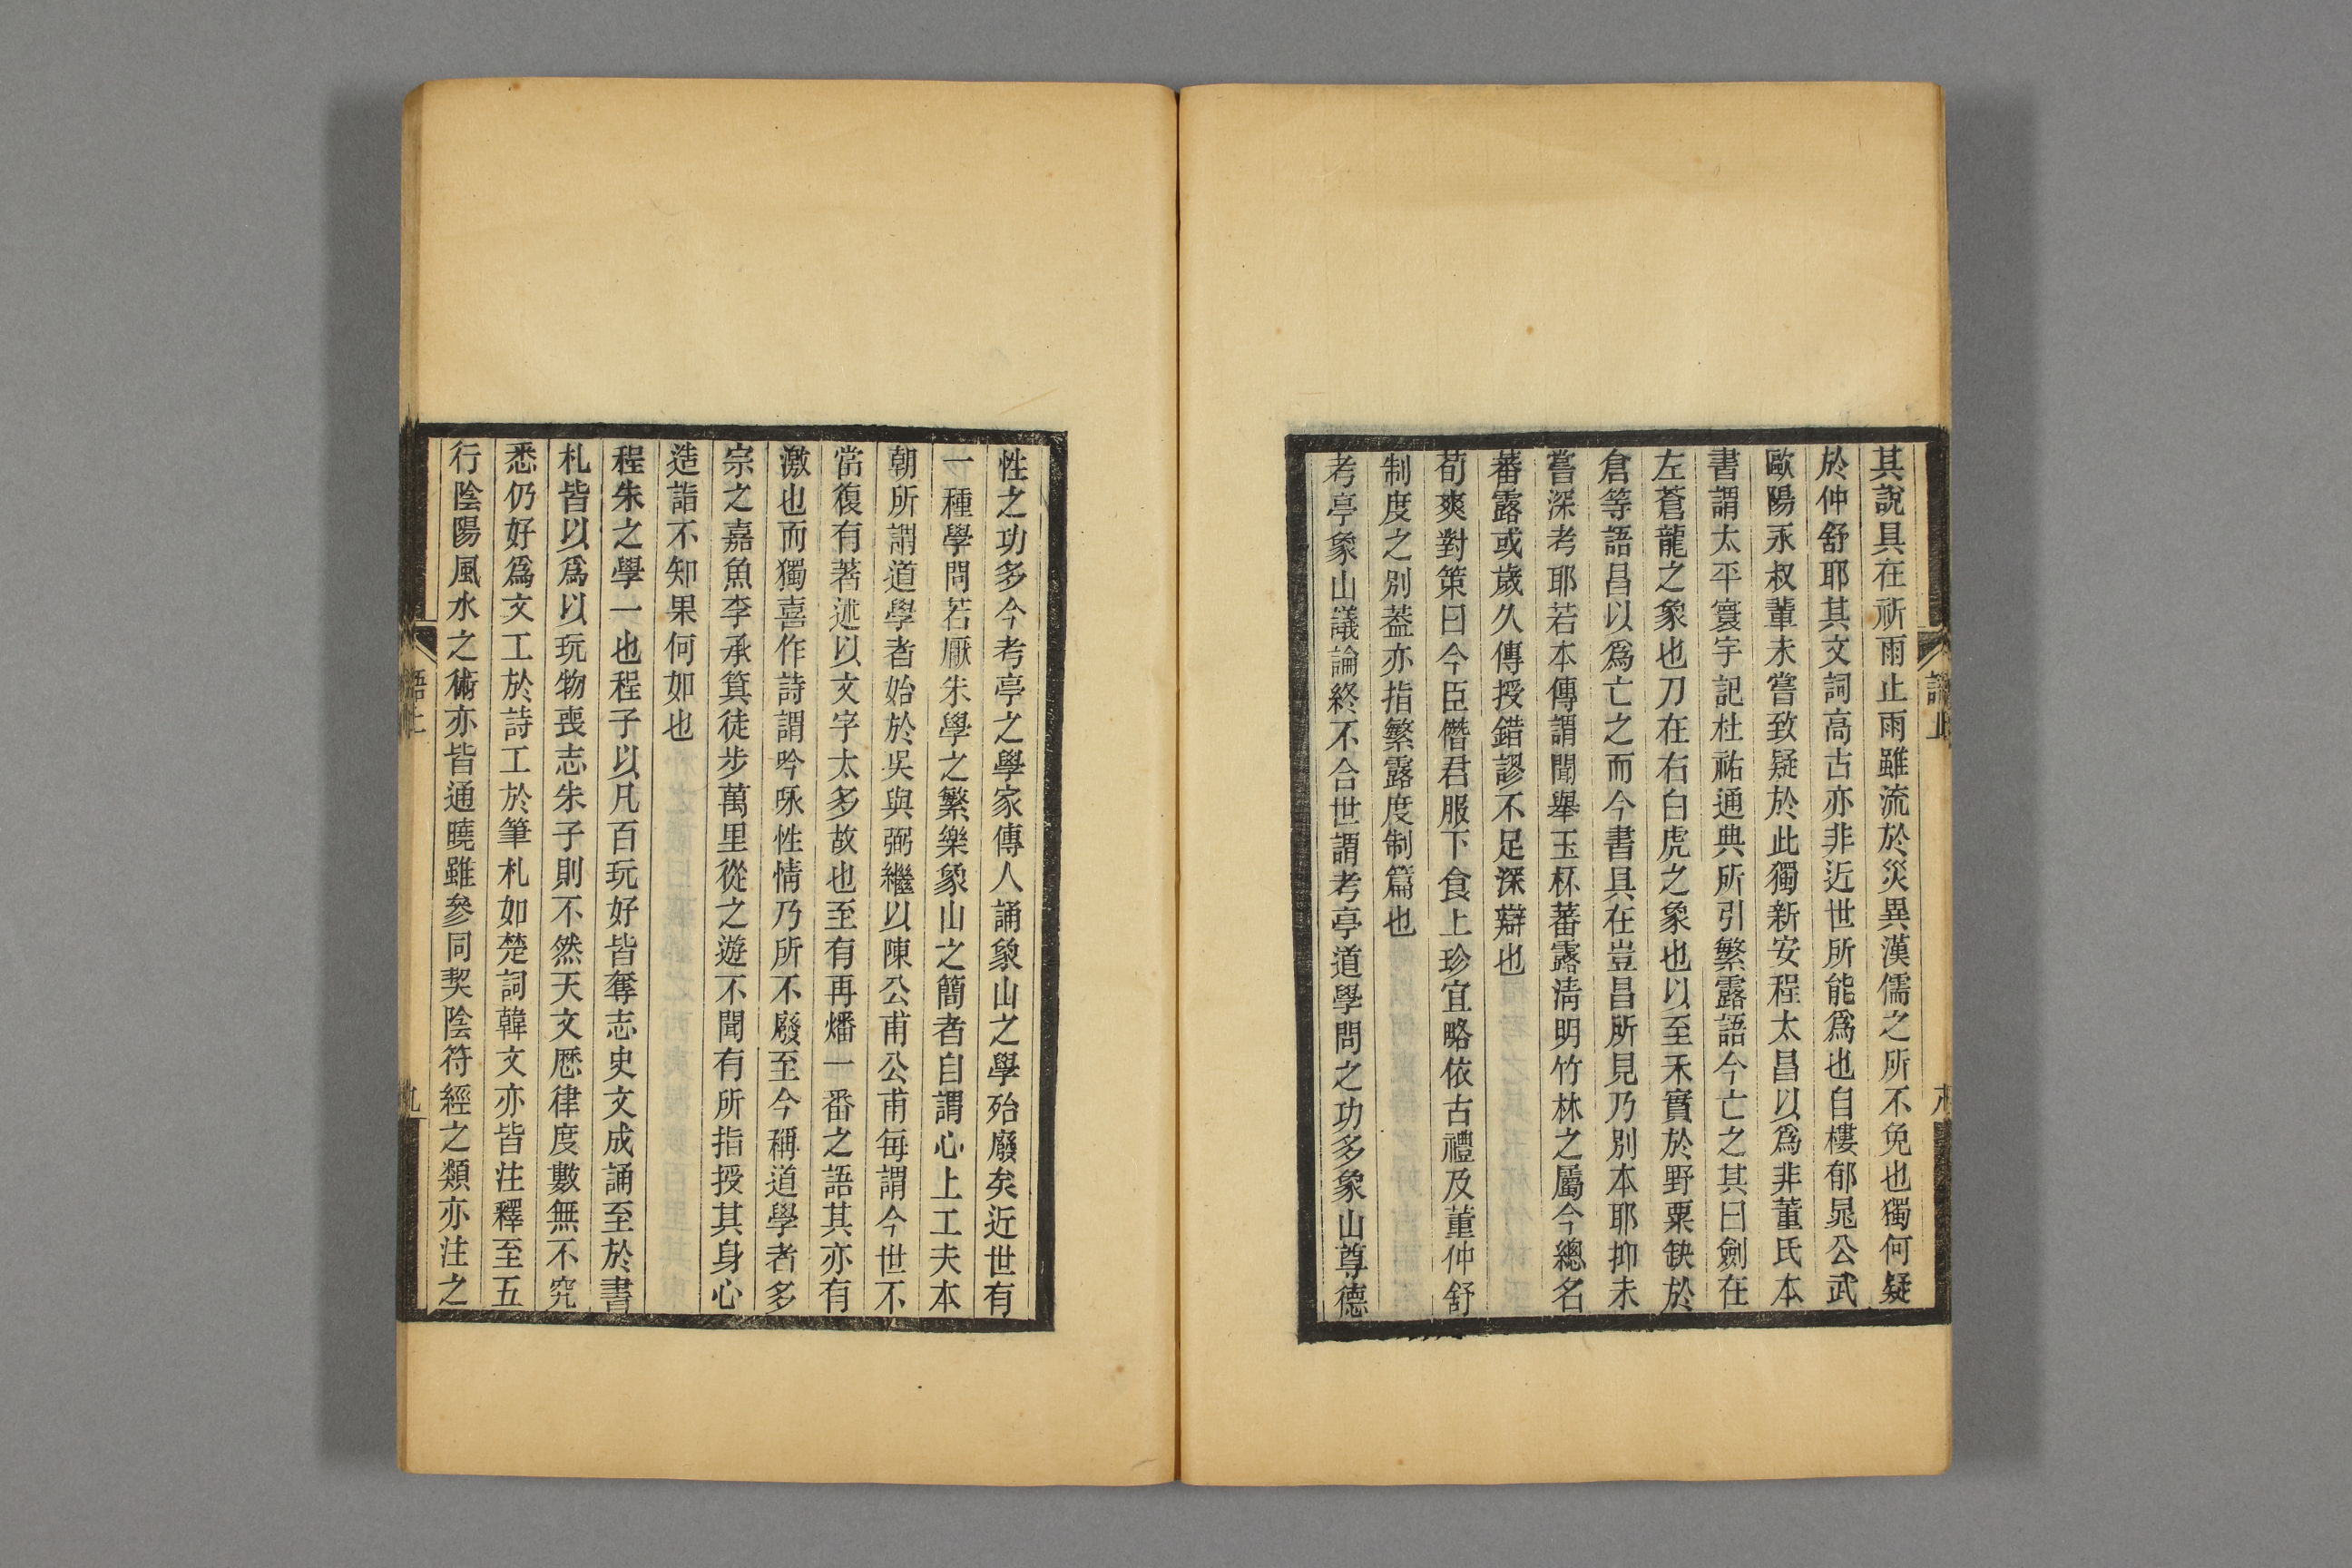 其說具在祈雨止雨雖流於災異漢儒之所不免也獨何疑
於仲舒耶其文詞高古亦非近世所能爲也自樓郁晁公武
歐陽永叔輩未嘗致疑於此獨新安程太昌以爲非董氏本
書謂太平寰宇記杜祐通典所引繁露語今亡之其曰劍在
左蒼龍之象也刀在右白虎之象也以至禾實於野粟缺於
倉等語昌以爲亡之而今書具在豈昌所見乃別本耶抑未
嘗深考耶若本傳謂聞舉玉杯蕃露淸明竹林之屬今總名
蕃露或歲久傳授錯謬不足深辯也
荀爽對策曰今臣僭君服下食上珍宜略依古禮及董仲舒
制度之別葢亦指繁露度制篇也
考亭象山議論終不合世謂考亭道學問之功多象山尊德
性之功多今考亭之學家傳人誦象山之學殆廢矣近世有
一種學問若厭朱學之繁樂象山之簡者自謂心上工夫本
朝所謂道學者始於吳與弼繼以陳公甫公甫每謂今世不
當復有著述以文字太多故也至有再燔一番之語其亦有
激也而獨喜作詩謂吟咏性情乃所不廢至今稱道學者多
宗之嘉魚李承箕徒步萬里從之遊不聞有所指授其身心
造詣不知果何如也
程朱之學一也程子以凡百玩好皆奪志史文成誦至於書
札皆以爲以玩物喪志朱子則不然天文厯律度數無不究
悉仍好爲文工於詩工於筆札如楚詞韓文亦皆注釋至五
行陰陽風水之術亦皆通曉雖參同契陰符經之類亦注之
語上
九